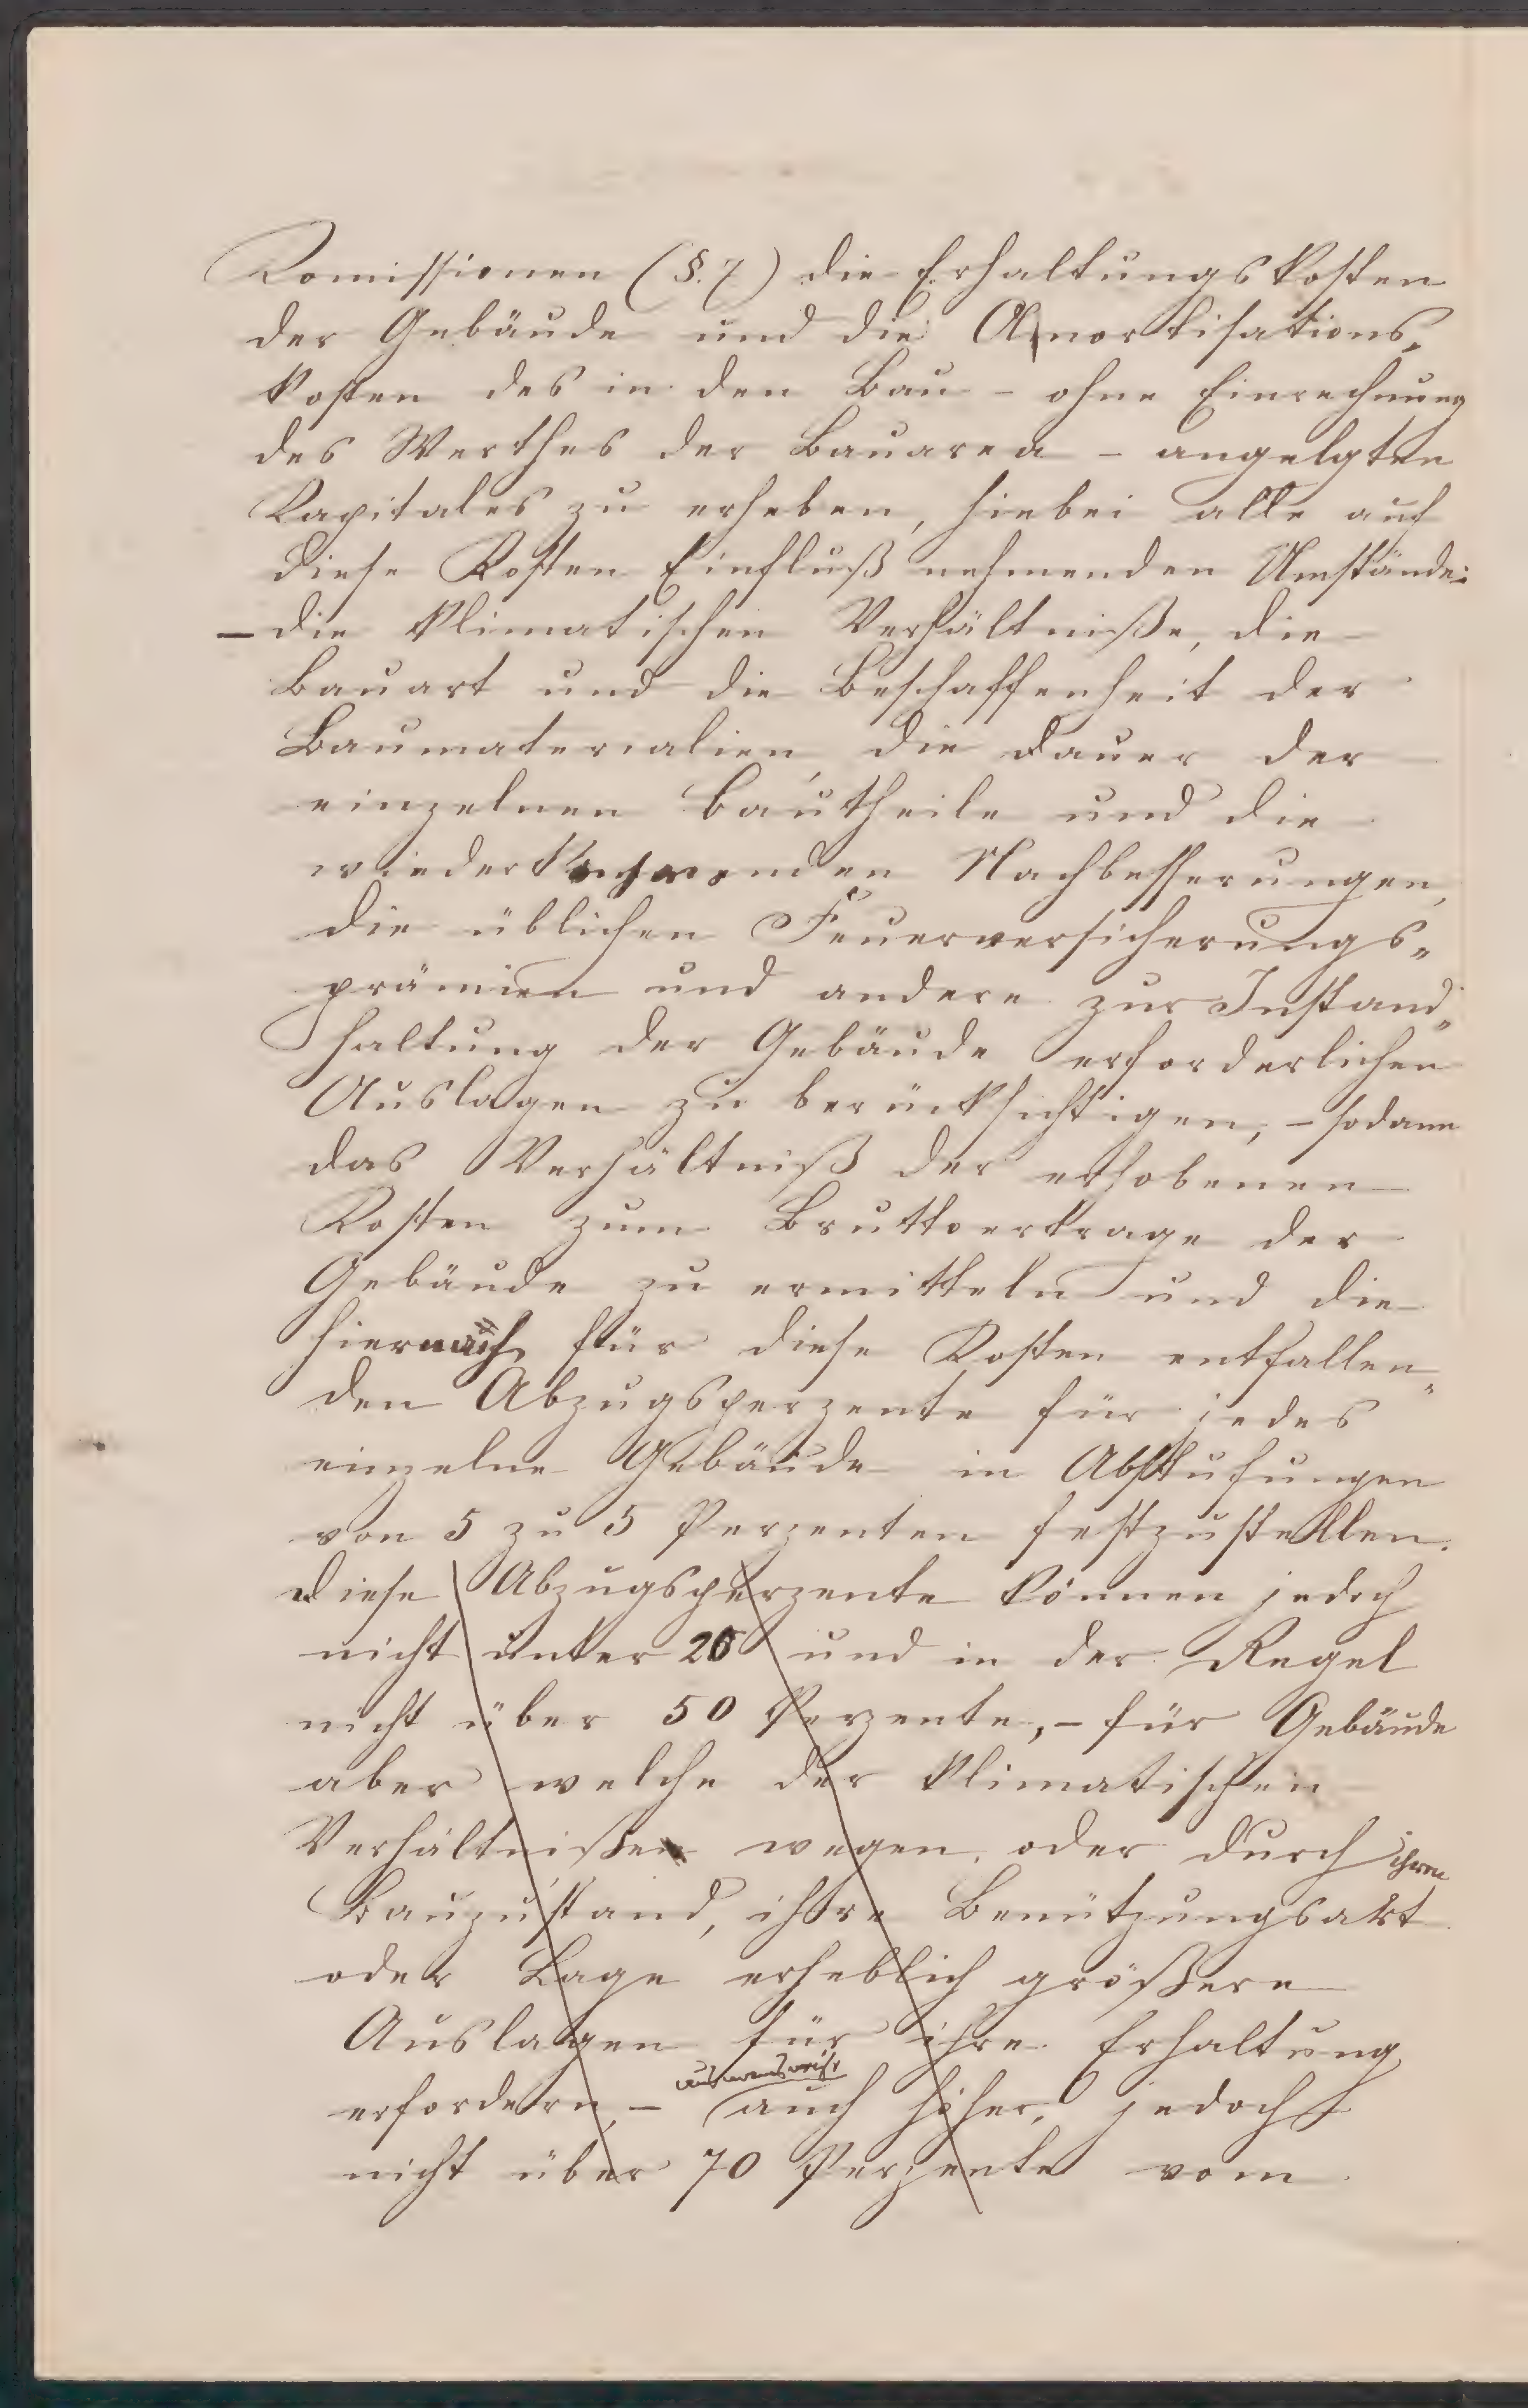 Komissionen (§. 7) die Erhaltungskosten
der Gebäude und die Amortisations„
kosten des in den Bau – ohne Einrechnung
des Werthes der Bauarea – angelgten
Kapitales zu erheben, hiebei alle auf
diese Kosten Einfluß nehmenden Umstände:
– die klimatischen Verhältniße, die
Bauart und die Beschaffenheit der
Baumaterialien, die Dauer der
einzelnen Bautheile und die
wiederkehrenden Nachbesserungen,
die üblichen Feuerversicherungs„
prämien und andere zur Instand„
haltung der Gebäude erforderlichen
Auslagen zu berücksichtigen, – sodann
das Verhältniß der erhobenen
Kosten zum Bruttoertrage der
Gebäude zu ermitteln und die
hiernach für diese Kosten entfallen„
den Abzugsperzente für jedes
einzelne Gebäude in Abstufungen
von 5 zu 5 Perzenten festzustellen.
Diese Abzugsperzente können jedoch
nicht unter 25 und in der Regel
nicht über 50 Perzente, – für Gebäude
aber welche der klimatischen
Verhältniße wegen oder durch ihren
Bauzustand, ihre Benützungsart
oder Lage erheblich größere
Auslagen für ihre Erhaltung
erfordern, – ausnamsweise auch höher, jedoch
nicht über 70 Perzente vom